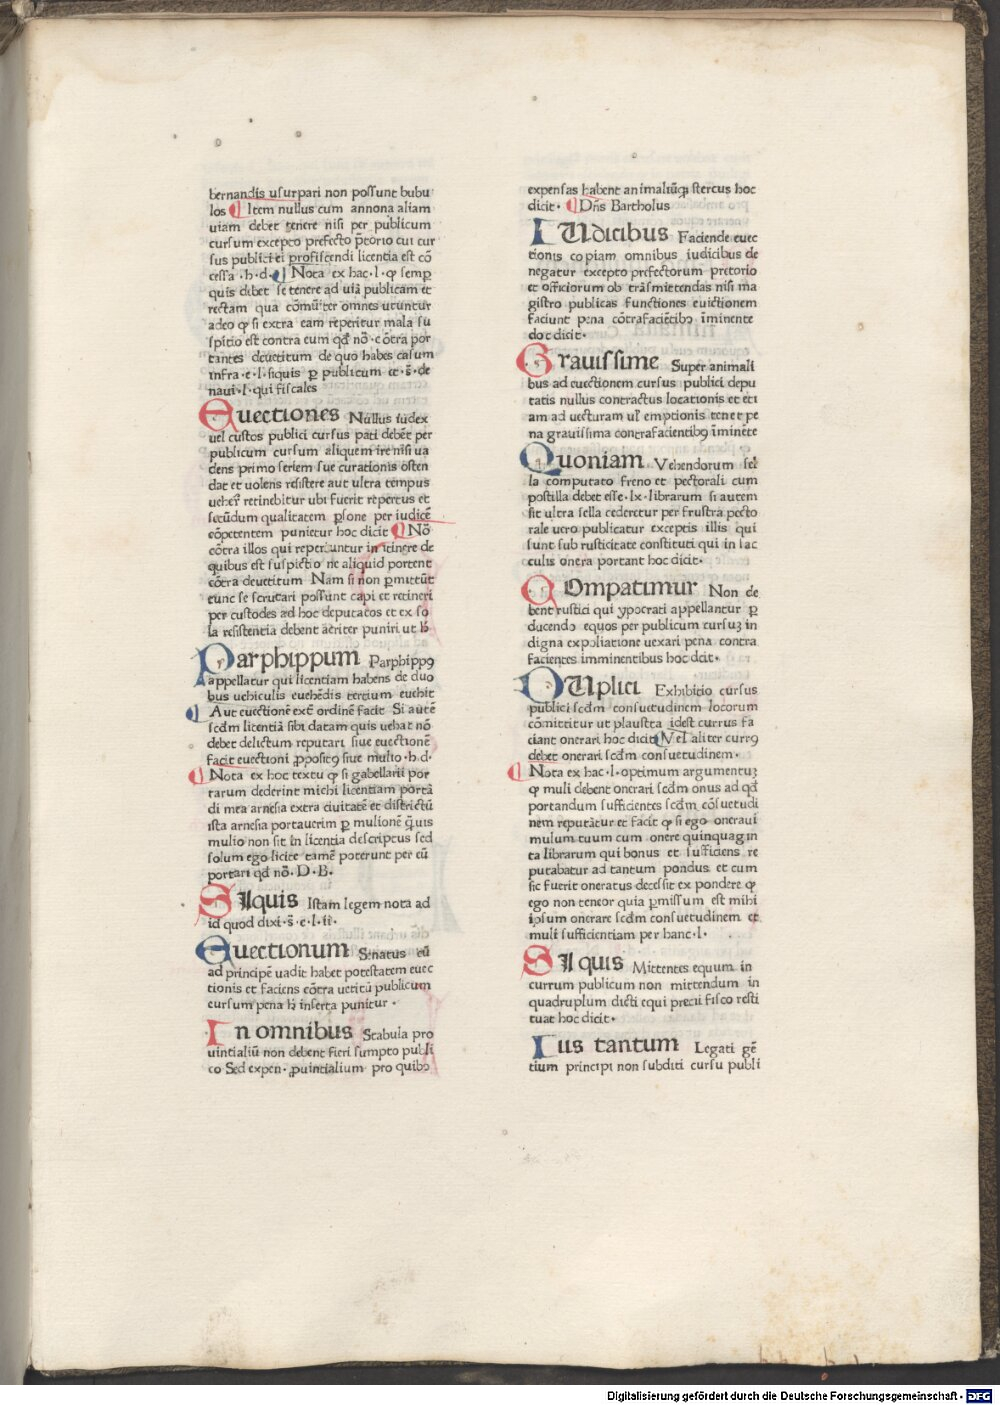 bernandis usurpari non possunt bubu
los Item nullus cum annona aliam
uiam debet tenere nisi per publicum
cursum excepto prefecto p̄torio cui cur
sus publici ei profiscendi licentia est cō
cessa ·h·d· Nota ex hac·l·ꝙ semꝑ
quis debet se tenere ad uiā publicam et
rectam qua cōmūiter omnes utuntur
adeo ꝙ si extra eam reperitur mala su
spitio est contra eum qđ nō·cōtra por
tantes deuetitum de quo habes casum
infra·e·l·siquis ꝑ publicum et·s̄·de
naui·l·qui fiscales
Euectiones Nullus iudex
uel custos publici cursus pati debēt per
publicum cursum aliquem ire nisi ua
dens primo seriem sue curationis osten
dat et uolens resistere aut ultra tempus
uehēƚ retinebitur ubi fuerit repertus et
secūdum qualitatem ꝑsone per iudicē
cōpetentem punietur hoc dicit Nō
cōtra illos qui reperiuntur in itinere de
quibus est suspictio ne aliquid portent
cōtra deuetitum Nam si non ꝑmittūt
tunc se scrutari possunt capi et retineri
per custodes ad hoc deputatos et ex so
la resistentia debent acriter puniri ut ħ
Parphippum Parphippꝰ
appellatur qui licentiam habens de duo
bus uehiculis euehēdis tertium euehit
Aut euectionē extͣ ordinē facit Si autē
scđm licentiā sibi datam quis uehat nō
debet delictum reputari siue euectionē
facit euectioni ꝓpositꝰ siue mulio·h·d·
Nota ex hoc textu ꝙ si gabellarii por
tarum dederint michi licentiam portā
di mea arnesia extra ciuitatē et districtū
ista arnesia portauerim ꝑ mulionē q̄uis
mulio non sit in licentia descriptus sed
solum ego licite tamē poterunt per eū
portari qđ nō·D·B·
SIquis Istam legem nota ad
id quod dixi·s̄·e·l·ii·
Euectionum Senatus cū
ad principē uadit habet potestatem euec
tionis et faciens cōtra uetitū publicum
cursum pena ħ inserta punitur·
In omnibus Stabula pro
uintialiū non debent fieri sumpto publi
co Sed expen·ꝓuintialium pro quibꝰ
expensas habent animaliūqꝫ stercus hoc
dicit· Dn̄s Bartholus
IUdicibus Faciende euec
tionis copiam omnibus iudicibus de
negatur excepto prefectorum pretorio
et officiorum ob trāsmittendas nisi ma
gistro publicas functiones euictionem
faciunt pena cōtrafaciētibꝰ īminente
doc dicit·
Grauissime Super animali
bus ad euectionem cursus publici depu
tatis nullus contractus locationis et eti
am ad uecturam uel emptionis tenet pe
na grauissima contrafacientibꝰ īminēte
Quoniam Vehendorum sel
la computato freno et pectorali cum
postilla debet esse·lx·librarum si autem
sit ultra sella cederetur per frustra pecto
rale uero publicatur exceptis illis qui
sunt sub rusticitate constituti qui in sac
culis onera portant hoc dicit·
COmpatimur Non de
bent rustici qui ypocrati appellantur ꝑ
ducendo equos per publicum cursuꝫ in
digna expoliatione uexari pena contra
facientes imminentibus hoc dcit·
QUUplici Exhibitio cursus
publici scđm consuetudinem locorum
cōmittitur ut plaustra idest currus fa
ciant onerari hoc dicit Vel aliter currꝰ
debet onerari scđm consuetudinem·
Nota ex hac·l·optimum argumentuꝫ
ꝙ muli debent onerari scđm onus ad qđ
portandum sufficientes scđm cōsuetudi
nem reputātur et facit ꝙ si ego oneraui
mulum tuum cum onere quinquagin
ta librarum qui bonus et sufficiens re
putabatur ad tantum pondus et cum
sic fuerit oneratus decessit ex pondere ꝙ
ego non teneor quia ꝑmissum est mihi
ipsum onerare scđm consuetudinem et
muli sufficientiam per hanc·l·
SI quis Mittentes equum in
currum publicum non mittendum in
quadruplum dicti equi precii fisco resti
tuat hoc dicit·
Ius tantum Legati gē
tium principi non subditi cursu publi
Digitalisierung gefördert durch die Deutsche Forschungsgemeinschaft - DFG